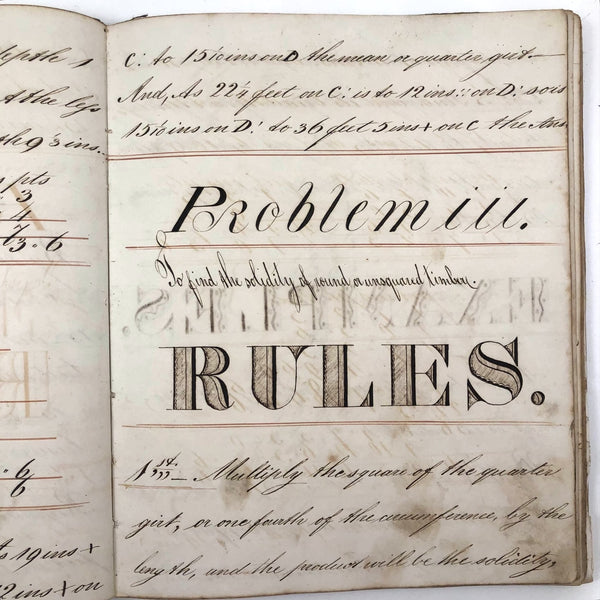 depth
at the less
the 9 3 ins.
pts
3
4
73 . 6
6
6
19 ins +
12 ins + on
C: to 15 10 ins on D the mean or quarter girt.—
And, As 22¼ feet on C: is to 12 ins :: on D: so is
15 10 ins on D: to 36 feet 5 ins + on C the Ans
Problem iii.
To find the solidity of round or unsquared timber.
RULES.
1st.— Multiply the square of the quarter
girt, or one fourth of the circumference, by the
length, and the product will be the solidity,